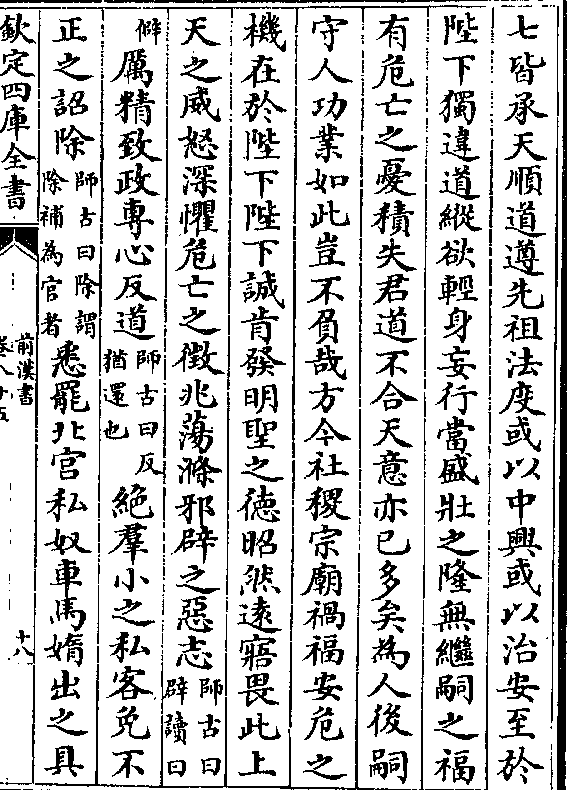 七皆承天順道遵先祖法度或以中興或以治安至於
陛下獨違道縱欲輕身妄行當盛壯之隆無繼嗣之福
有危亡之憂積失君道不合天意亦已多矣為人後嗣
守人功業如此豈不負哉方今社稷宗廟禍福安危之
機在於陛下陛下誠肯發明聖之德昭然遠寤畏此上
天之威怒深懼危亡之徴兆蕩滌邪辟之惡志師古曰辟讀曰
僻厲精致政專心反道師古曰反猶還也絶羣小之私客免不
正之詔除師古曰除謂除補為官者悉罷北宫私奴車馬媠出之具
欽定四庫全書
前漢書
卷八十五
十八